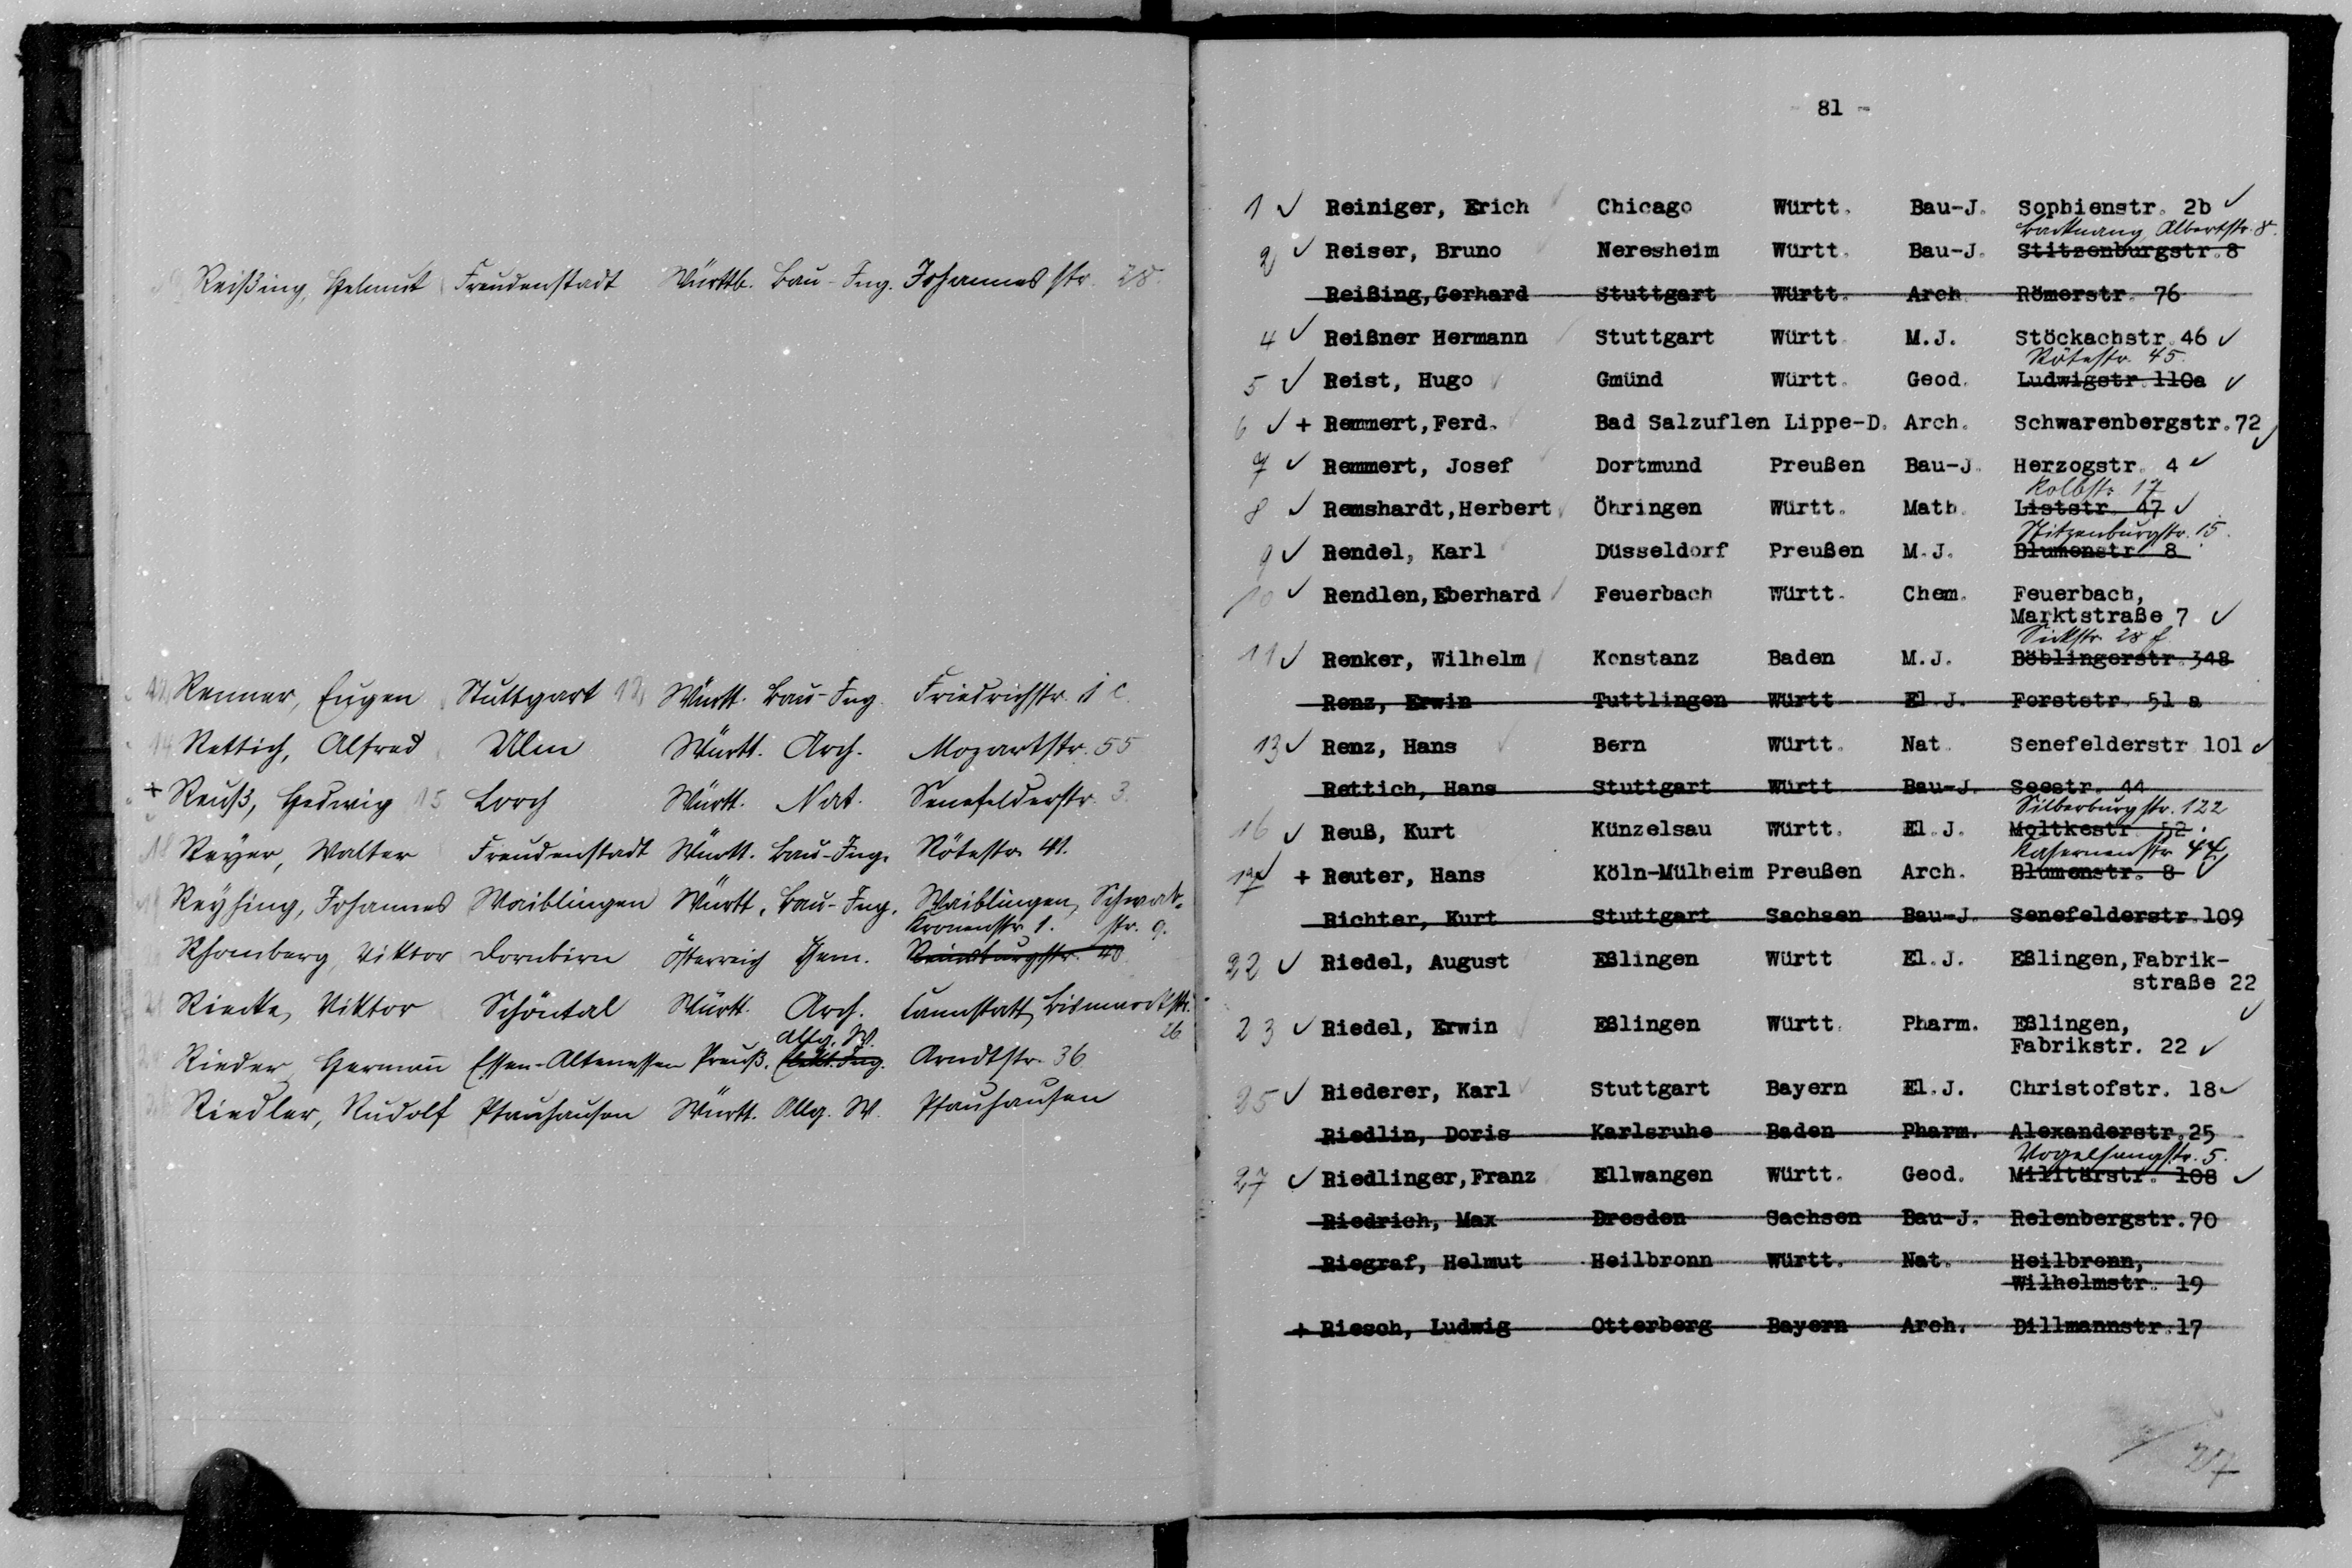 Reißing, Helmut Freudenstadt Württb. Bau-Ing. Johannesstr. 28.
12 Renner, Eugen Stuttgart 12 Württ. Bau-Ing. Friedrichstr. 1 c.
14 Rettich, Alfred Ulm Württ. Arch. Mozartstr. 55
+ Reuß, Hedwig 15 Lorch Württ. Nat. Senefelderstr. 3.
18 Reyer, Walter Freudenstadt Württ. Bau-Ing. Rötestr. 41.
19 Reyhing, Johannes Waiblingen Württ. Bau-Ing. Waiblingen,
Kronenstr. 1. str. 9.
Rhomberg, Viktor Dornbirn Österreich Chem. Reinsburgstr. 40
21 Riecke, Viktor Schöntal Württ. Arch. Cannstatt, Bismarckstr.
26
Allg. W.
Rieder, Hermann Essen-Altenessen Preuß. Elekt. Ing. Arndtstr. 36
Riedler, Rudolf Pfauhausen Württ. Allg. W. Pfauhausen
- 81 -
1 ✓ Reiniger, Erich Chicago Württ. Bau-J. Sophienstr. 2b ✓
Backnang, Albertstr. 8.
2 ✓ Reiser, Bruno Neresheim Württ. Bau-J. Stitzenburgstr. 8
Reißing, Gerhard Stuttgart Württ. Arch Römerstr. 76
4 ✓ Reißner Hermann Stuttgart Württ. M.J. Stöckachstr. 46 ✓
Rötestr. 45.
5 ✓ Reist, Hugo Gmünd Württ. Geod. Ludwigstr. 110a ✓
6 ✓ + Remmert, Ferd. Bad Salzuflen Lippe-D. Arch. Schwarenbergstr. 72 ✓
7 ✓ Remmert, Josef Dortmund Preußen Bau-J. Herzogstr. 4 ✓
Kolbstr. 17
8 ✓ Remshardt, Herbert Öhringen Württ. Math. Liststr. 47 ✓
Stitzenburgstr. 15.
9 ✓ Rendel, Karl Düsseldorf Preußen M.J. Blumenstr. 8
10 ✓ Rendlen, Eberhard Feuerbach Württ. Chem. Feuerbach,
Marktstraße 7 ✓
Sickstr. 28 f
11 ✓ Renker, Wilhelm Konstanz Baden M.J. Böblingerstr. 348
Renz, Erwin Tuttlingen Württ El.J. Forststr. 51 a
13 ✓ Renz, Hans Bern Württ. Nat. Senefelderstr 101 ✓
Rettich, Hans Stuttgart Württ Bau-J. Seestr. 44
Silberburgstr. 122
16 ✓ Reuß, Kurt Künzelsau Württ. El.J. Moltkestr. 52
Kasernenstr. 44
17 ✓ + Reuter, Hans Köln-Mülheim Preußen Arch. Blumenstr. 8 ✓
Richter, Kurt Stuttgart Sachsen Bau-J. Senefelderstr. 109
22 ✓ Riedel, August Eßlingen Württ El.J. Eßlingen, Fabrik-
straße 22 ✓
23 ✓ Riedel, Erwin Eßlingen Württ. Pharm. Eßlingen,
Fabrikstr. 22 ✓
25 ✓ Riederer, Karl Stuttgart Bayern El.J. Christofstr. 18 ✓
Riedlin, Doris Karlsruhe Baden Pharm. Alexanderstr. 25
Vogelsangstr. 5.
27 ✓ Riedlinger, Franz Ellwangen Württ. Geod. Militärstr. 108 ✓
Riedrich, Max Dresden Sachsen Bau-J. Relenbergstr. 70
Riegraf, Helmut Heilbronn Württ. Nat. Heilbronn,
Wilhelmstr. 19
+ Riesch, Ludwig Otterberg Bayern Arch. Dillmannstr. 17
27